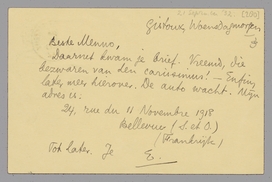 Gistoux, Woensdagmorgen
Beste Menno,
Daarnet kwam je brief. Vreemd, die
bezwaren van den carissimus! – Enfin,
later meer hierover. De auto wacht. Mijn
adres is:
24, rue du 11 Novembre 1918
Bellevue (S. et O.)
(Frankrijk)
Tot later. Je E.